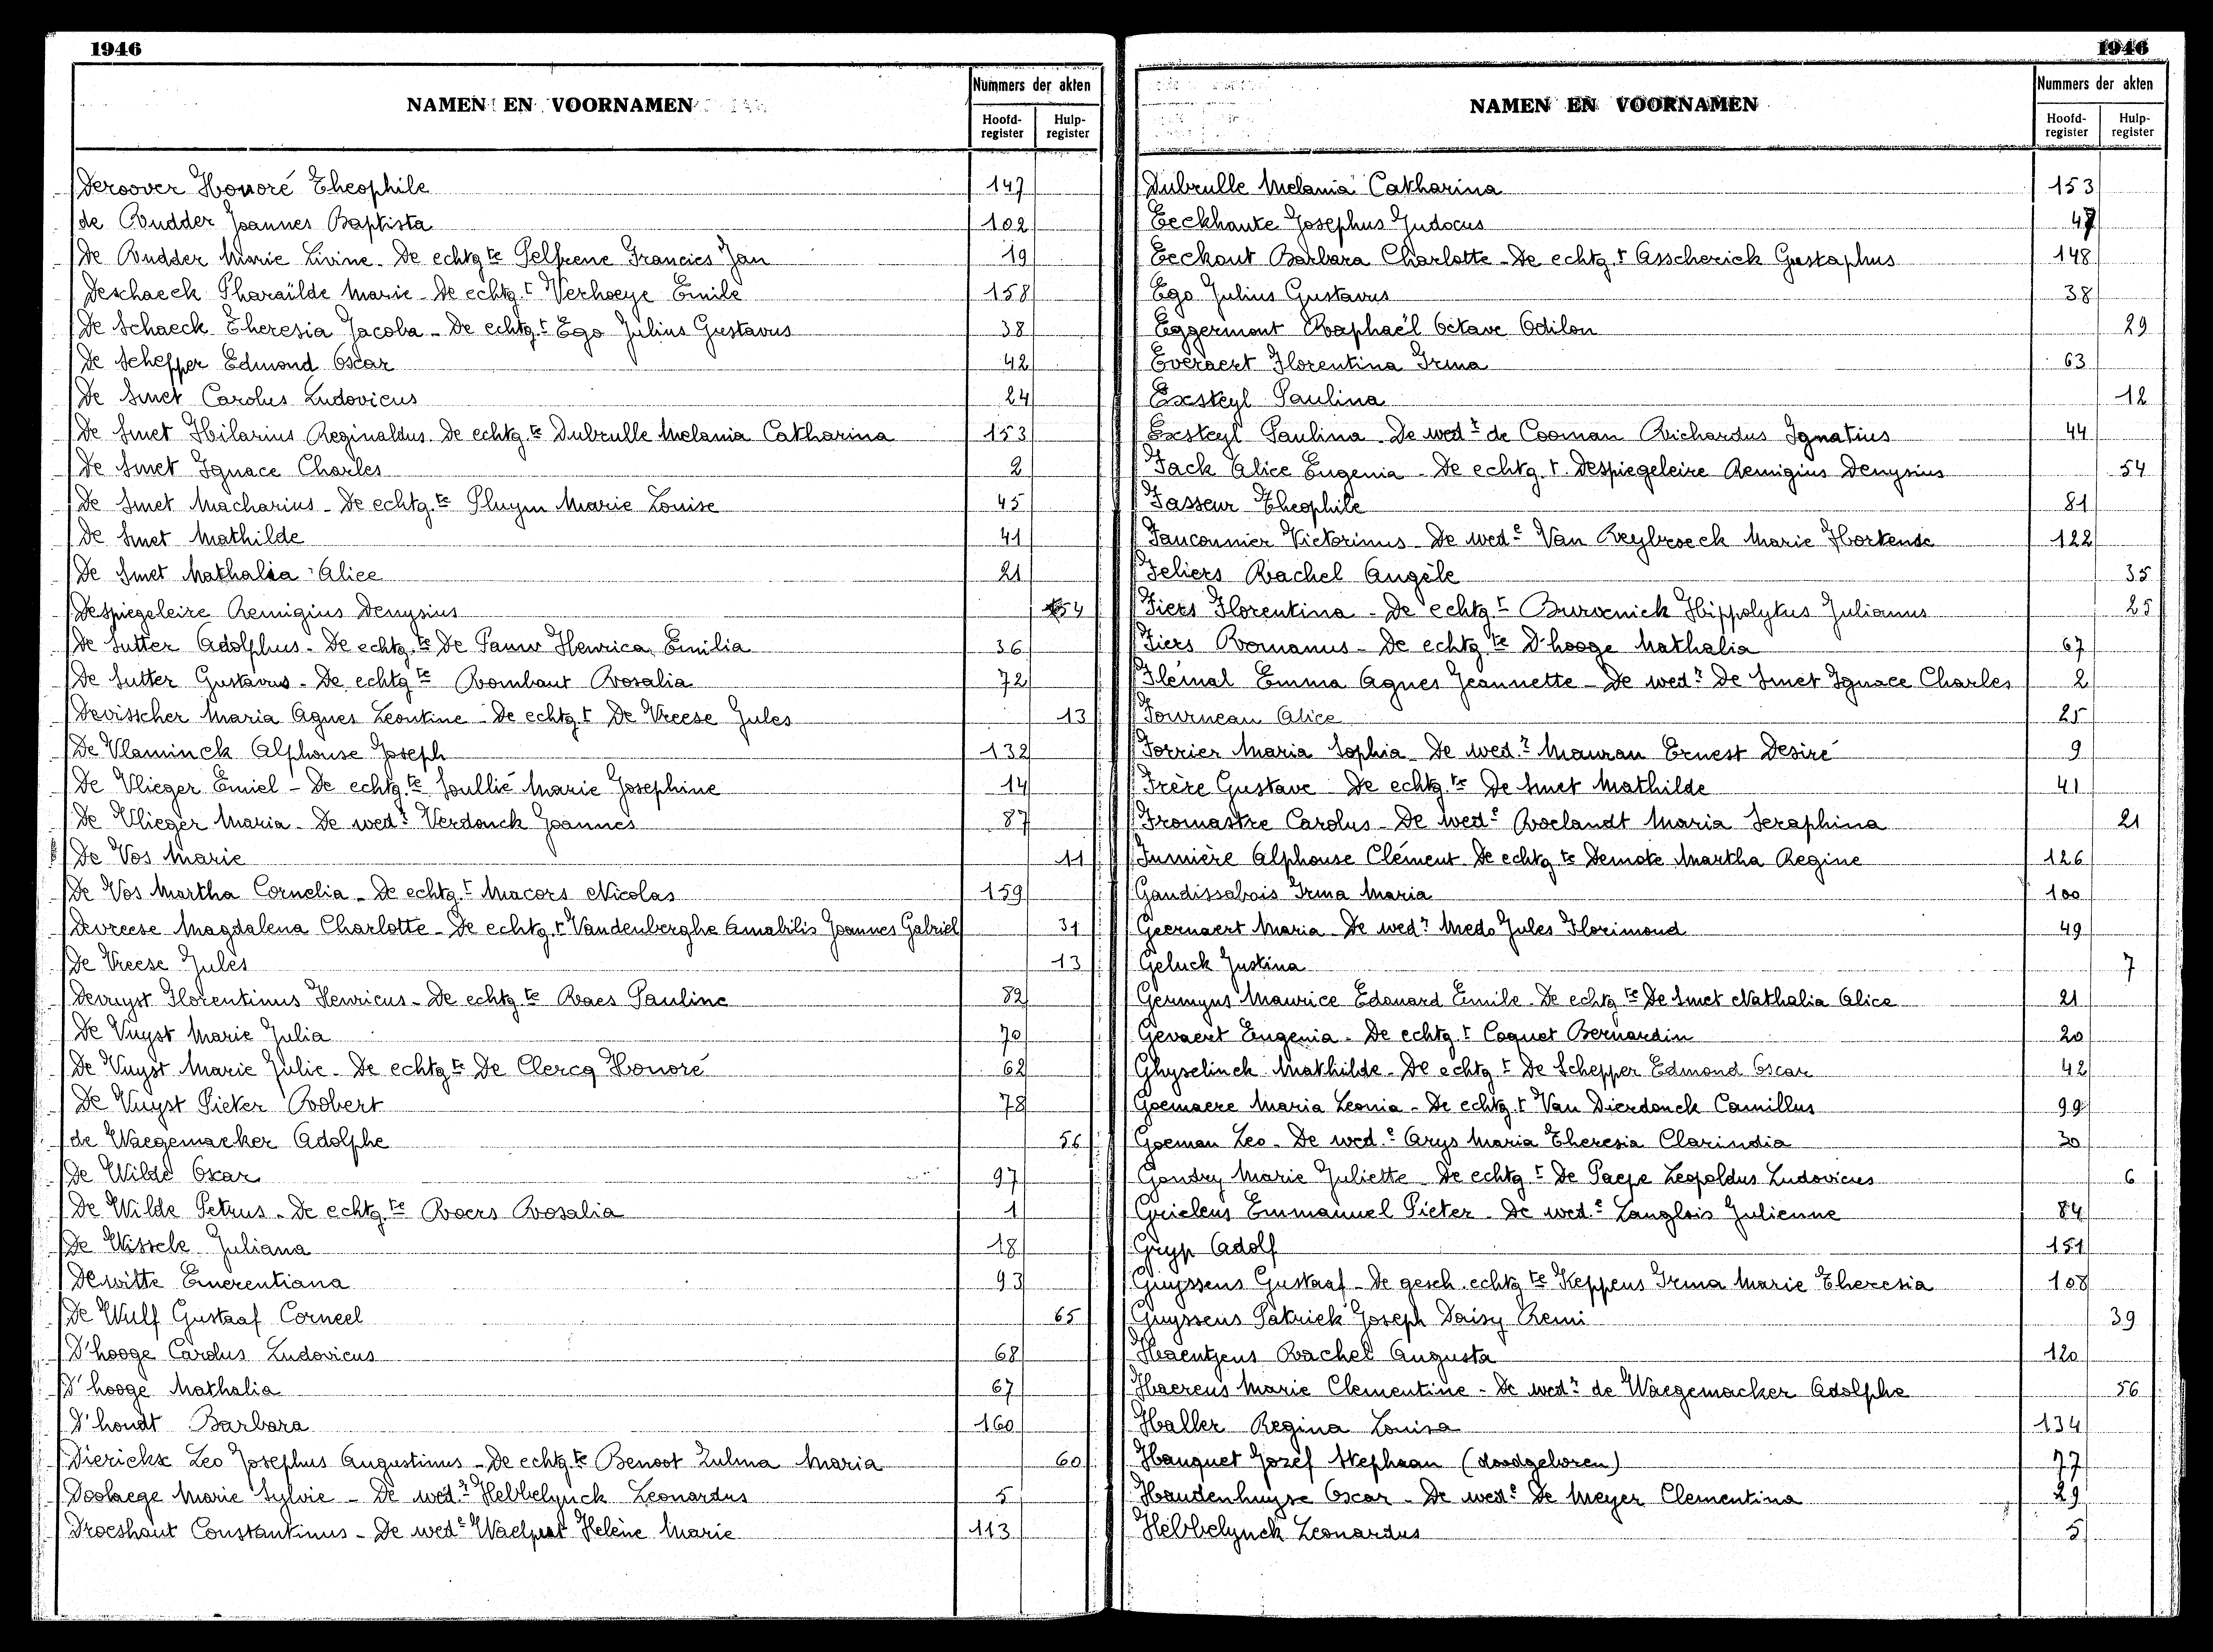 1946
NAMEN EN VOORNAMEN
Nummers der akten
Hoofd-register Hulp-register
Deroover Honoré Theophile 147
de Rudder Joannes Baptista 102
De Rudder Marie Livine - De echtg.te Pelfrene Francies Jan 19
Deschaeck Pharaïlde Marie - De echtg.t Verhoeye Emile 158
De Schaeck Theresia Jacoba - De echtg.t Ego Julius Gustavus 38
De Schepper Edmond Oscar 42
De Smet Carolus Ludovicus 24
De Smet Hilarius Reginaldus. De echtg.te Dubrulle Melania Catharina 153
De Smet Ignace Charles 2
De Smet Macharius - De echtg.te Pluym Marie Louise 45
De Smet Mathilde 41
De Smet Nathalia Alice 21
Despiegeleire Remigius Denysius 54
De Sutter Adolphus - De echtg.te De Pauw Henrica Emilia 36
De Sutter Gustavus - De echtg.te Rombaut Rosalia 72
Devisscher Maria Agnes Leontine - De echtg.t De Vreese Jules 13
De Vlaminck Alphonse Joseph 132
De Vlieger Emiel - De echtg.te Soullié Marie Josephine 14
De Vlieger Maria - De wed.r Verdonck Joannes 87
De Vos Marie 11
De Vos Martha Cornelia - De echtg.t Macors Nicolas 159
Devreese Magdalena Charlotte - De echtg.t Vandenberghe Amabilis Joannes Gabriel 31
De Vreese Jules 13
Devuyst Florentinus Henricus - De echtg.te Raes Pauline 82
De Vuyst Marie Julia 70
De Vuyst Marie Julie - De echtg.te De Clercq Honoré 62
De Vuyst Pieter Robert 78
de Waegemaeker Adolphe 56
De Wilde Oscar 97
De Wilde Petrus - De echtg.te Roers Rosalia 1
De Wissele Juliana 18
Dewitte Emerentiana 93
De Wulf Gustaaf Corneel 65
D'hooge Carolus Ludovicus 68
D'hooge Nathalia 67
D'hondt Barbara 160
Dierickx Leo Josephus Augustinus - De echtg.te Benoot Zulma Maria 60
Doolaege Marie Sylvie - De wed.r Hebbelynck Leonardus 5
Droeshout Constantinus - De wed.e Waelput Helène Marie 113
1946
NAMEN EN VOORNAMEN
Nummers der akten
Hoofd-register Hulp-register
Dubrulle Melania Catharina 153
Eeckhaute Josephus Judocus 47
Eeckout Barbara Charlotte - De echtg.t Asscherick Gustaphus 148
Ego Julius Gustavus 38
Eggermont Raphaël Octave Odilon 29
Everaert Florentina Irma 63
Exsteyl Paulina 12
Exsteyl Paulina - De wed.r de Cooman Richardus Ignatius 44
Fack Alice Eugenia - De echtg.t Despiegeleire Remigius Denysius 54
Fasseur Theophile 81
Fauconnier Victorinus - De wed.e Van Reybroeck Marie Hortense 122
Feliers Rachel Angèle 35
Fiers Florentina - De echtg.t Burvenick Hippolytus Julianus 25
Fiers Romanus - De echtg.te D'hooge Nathalia 67
Flémal Emma Agnes Jeannette - De wed.r De Smet Ignace Charles 2
Fourneau Alice 25
Forrier Maria Sophia - De wed.r Mauran Ernest Desiré 9
Frère Gustave - De echtg.te De Smet Mathilde 41
Fromastre Carolus - De wed.e Roelandt Maria Seraphina 21
Fumière Alphonse Clément - De echtg.te Demote Martha Regine 126
Gandissabois Irma Maria 100
Geernaert Maria - De wed.r Medo Jules Florimond 49
Geluck Justina 7
Germyns Maurice Edouard Emile - De echtg.te De Smet Nathalia Alice 21
Gevaert Eugenia - De echtg.t Coquet Bernardin 20
Ghyselinck Mathilde - De echtg.t De Schepper Edmond Oscar 42
Goemaere Maria Leonia - De echtg.t Van Dierdonck Camillus 99
Goeman Leo - De wed.e Arys Maria Theresia Clarindia 30
Gondry Marie Juliette - De echtg.t De Paepe Leopoldus Ludovicus 6
Grielens Emmanuel Pieter - De wed.e Langlois Julienne 84
Gryp Adolf 151
Guyssens Gustaaf - De gesch. echtg.te Keppens Irma Marie Theresia 108
Guyssens Patrick Joseph Daisy Remi 39
Haentjens Rachel Augusta 120
Haerens Marie Clementine - De wed.r de Waegemacker Adolphe 56
Haller Regina Louisa 134
Hanquet Jozef Stephaan (doodgeboren) 77
Haudenhuyse Oscar - De wed.e De Meyer Clementina 29
Hebbelynck Leonardus 5